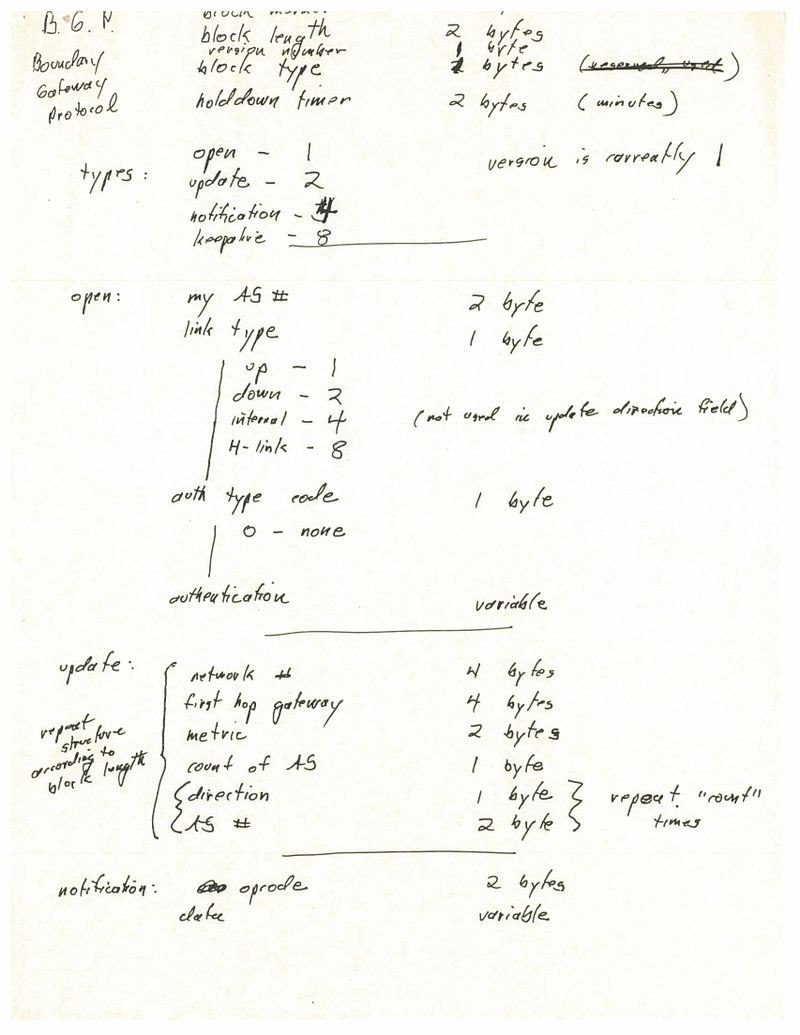 B. G. P.
Boundary
Gateway
Protocol
block length 2 bytes
version number 1 byte
block type bytes
holddown timer 2 bytes (minutes)
types:
open - 1 version is currently 1
update - 2
notification - 4
keepalive - 8
open: my AS # 2 byte
link type 1 byte
up - 1
down - 2
internal - 4 (not used in update direction field)
H-link - 8
auth type code 1 byte
0 - none
authentication variable
update:
repeat
structure
according to
block length
network # 4 bytes
first hop gateway 4 bytes
metric 2 bytes
count of AS 1 byte
{direction 1 byte } repeat "count"
{AS # 2 byte } times
notification: opcode 2 bytes
data variable